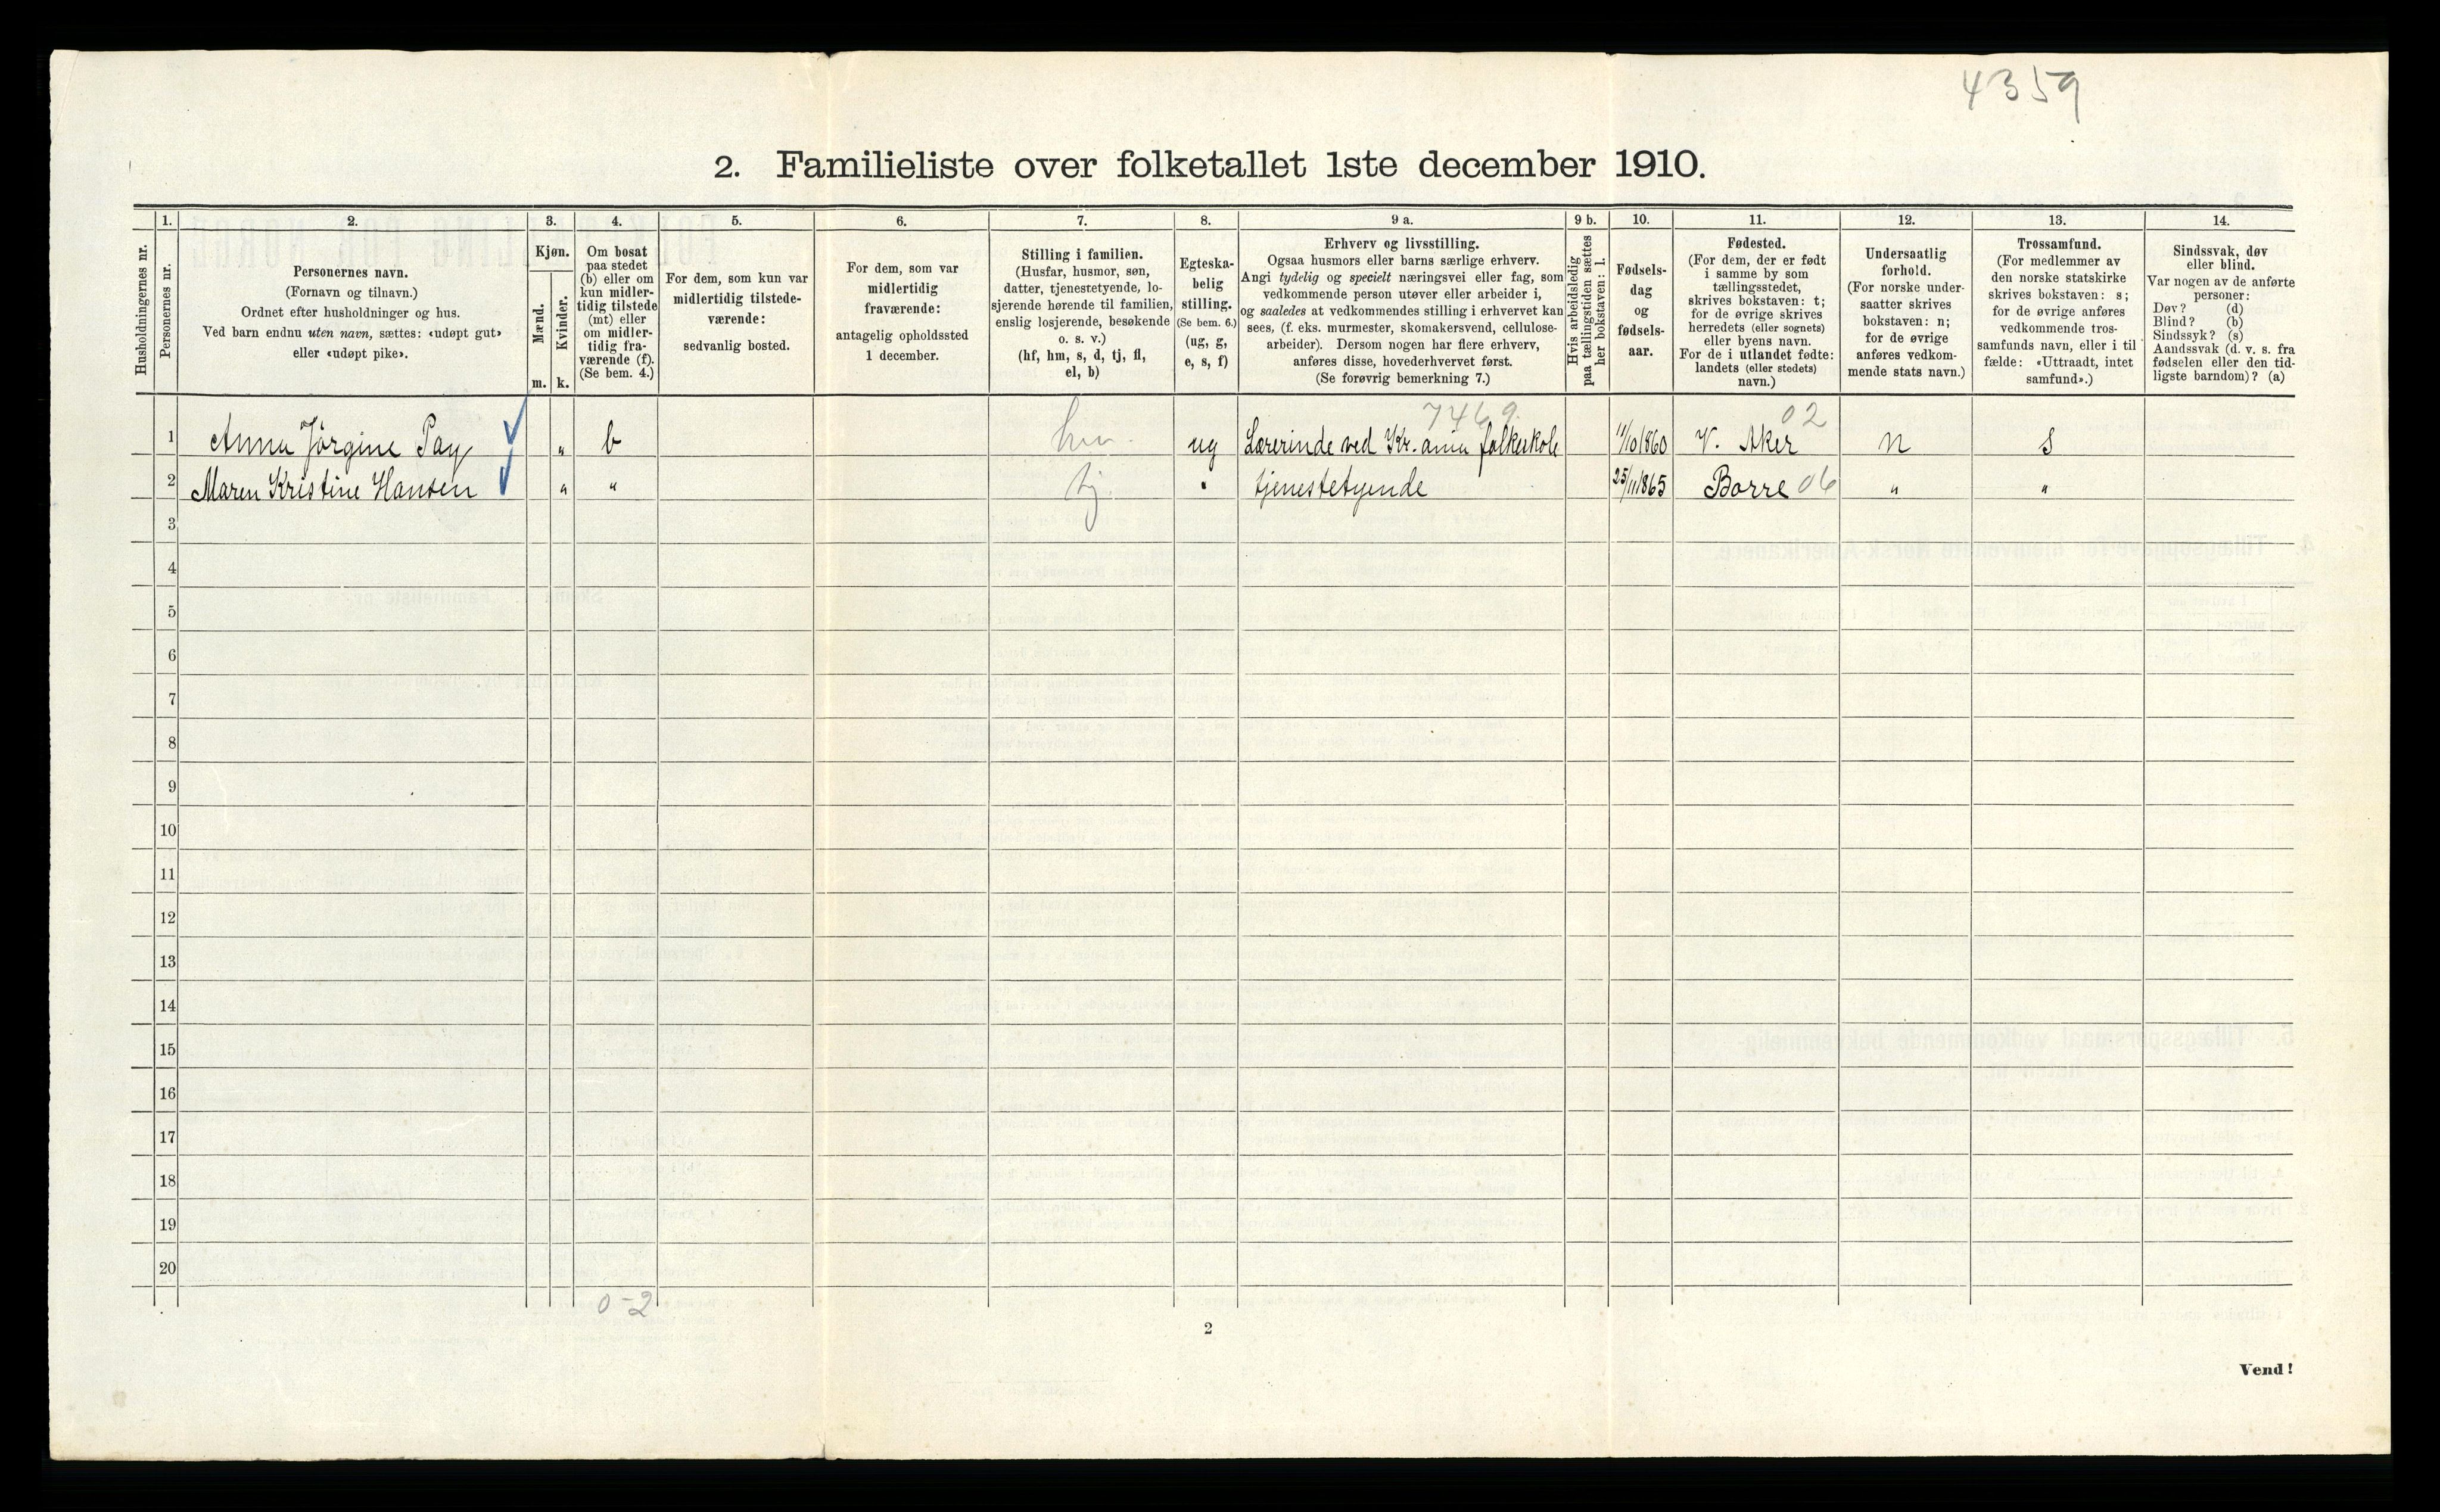 4359
2. Familieliste over folketallet 1ste december 1910.
Husholdningernes nr.
1.
Personernes nr.
2.
Personernes navn.
(Fornavn og tilnavn.)
Ordnet efter husholdninger og hus.
Ved barn endnu uten navn, sættes: «udøpt gut»
eller «udøpt pike».
3.
Kjøn.
Mænd.
Kvinder.
m. k.
4.
Om bosat
paa stedet
(b) eller om
kun midler-
tidig tilstede
(mt) eller
om midler-
tidig fra-
værende (f).
(Se bem. 4.)
5.
For dem, som kun var
midlertidig tilstede-
værende:
sedvanlig bosted.
6.
For dem, som var
midlertidig
fraværende:
antagelig opholdssted
1 december.
7.
Stilling i familien.
(Husfar, husmor, søn,
datter, tjenestetyende, lo-
sjerende hørende til familien,
enslig losjerende, besøkende
o. s. v.)
(hf, hm, s, d, tj, fl,
el, b)
8.
Egteska-
belig
stilling.
(Se bem. 6.)
(ug, g,
e, s, f)
9 a.
Erhverv og livsstilling.
Ogsaa husmors eller barns særlige erhverv.
Angi tydelig og specielt næringsvei eller fag, som
vedkommende person utøver eller arbeider i,
og saaledes at vedkommendes stilling i erhvervet kan
sees, (f. eks. murmester, skomakersvend, cellulose-
arbeider). Dersom nogen har flere erhverv,
anføres disse, hovederhvervet først.
(Se forøvrig bemerkning 7.)
9 b.
Hvis arbeidsledig
paa tællingstiden sættes
her bokstaven: l.
10.
Fødsels-
dag
og
fødsels-
aar.
11.
Fødested.
(For dem, der er født
i samme by som
tællingsstedet,
skrives bokstaven: t;
for de øvrige skrives
herredets (eller sognets)
eller byens navn.
For de i utlandet fødte:
landets (eller stedets)
navn.)
12.
Undersaatlig
forhold.
(For norske under-
saatter skrives
bokstaven: n;
for de øvrige
anføres vedkom-
mende stats navn.)
13.
Trossamfund.
(For medlemmer av
den norske statskirke
skrives bokstaven: s;
for de øvrige anføres
vedkommende tros-
samfunds navn, eller i til
fælde: «Uttraadt, intet
samfund».)
14.
Sindssvak, døv
eller blind.
Var nogen av de anførte
personer:
Døv? (d)
Blind? (b)
Sindssyk? (s)
Aandssvak (d. v. s. fra
fødselen eller den tid-
ligste barndom)? (a)
7469. 02
1 Anna Jörgine Pay " b hm. ug Lærerinde ved Kr.ania folkeskole 11/10 1860 V. Aker n s
2 Maren Kristine Hansen " " tj. " tjenestetyende 25/11 1865 Borre 06 " "
3
4
5
6
7
8
9
10
11
12
13
14
15
16
17
18
19
20
0-2
2
Vend!